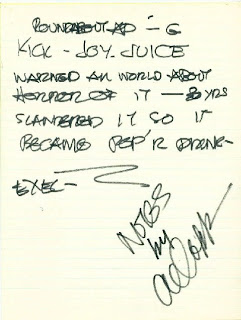 ROUNDABOUT AD - G
KICK - JOY JUICE
WARNED AN WORLD ABOUT
HORROR OF IT — 30 YRS
SLANDERED IT SO IT
BECAME POP'R DRINK-
EXEC-
NOTES
by
Al Capp